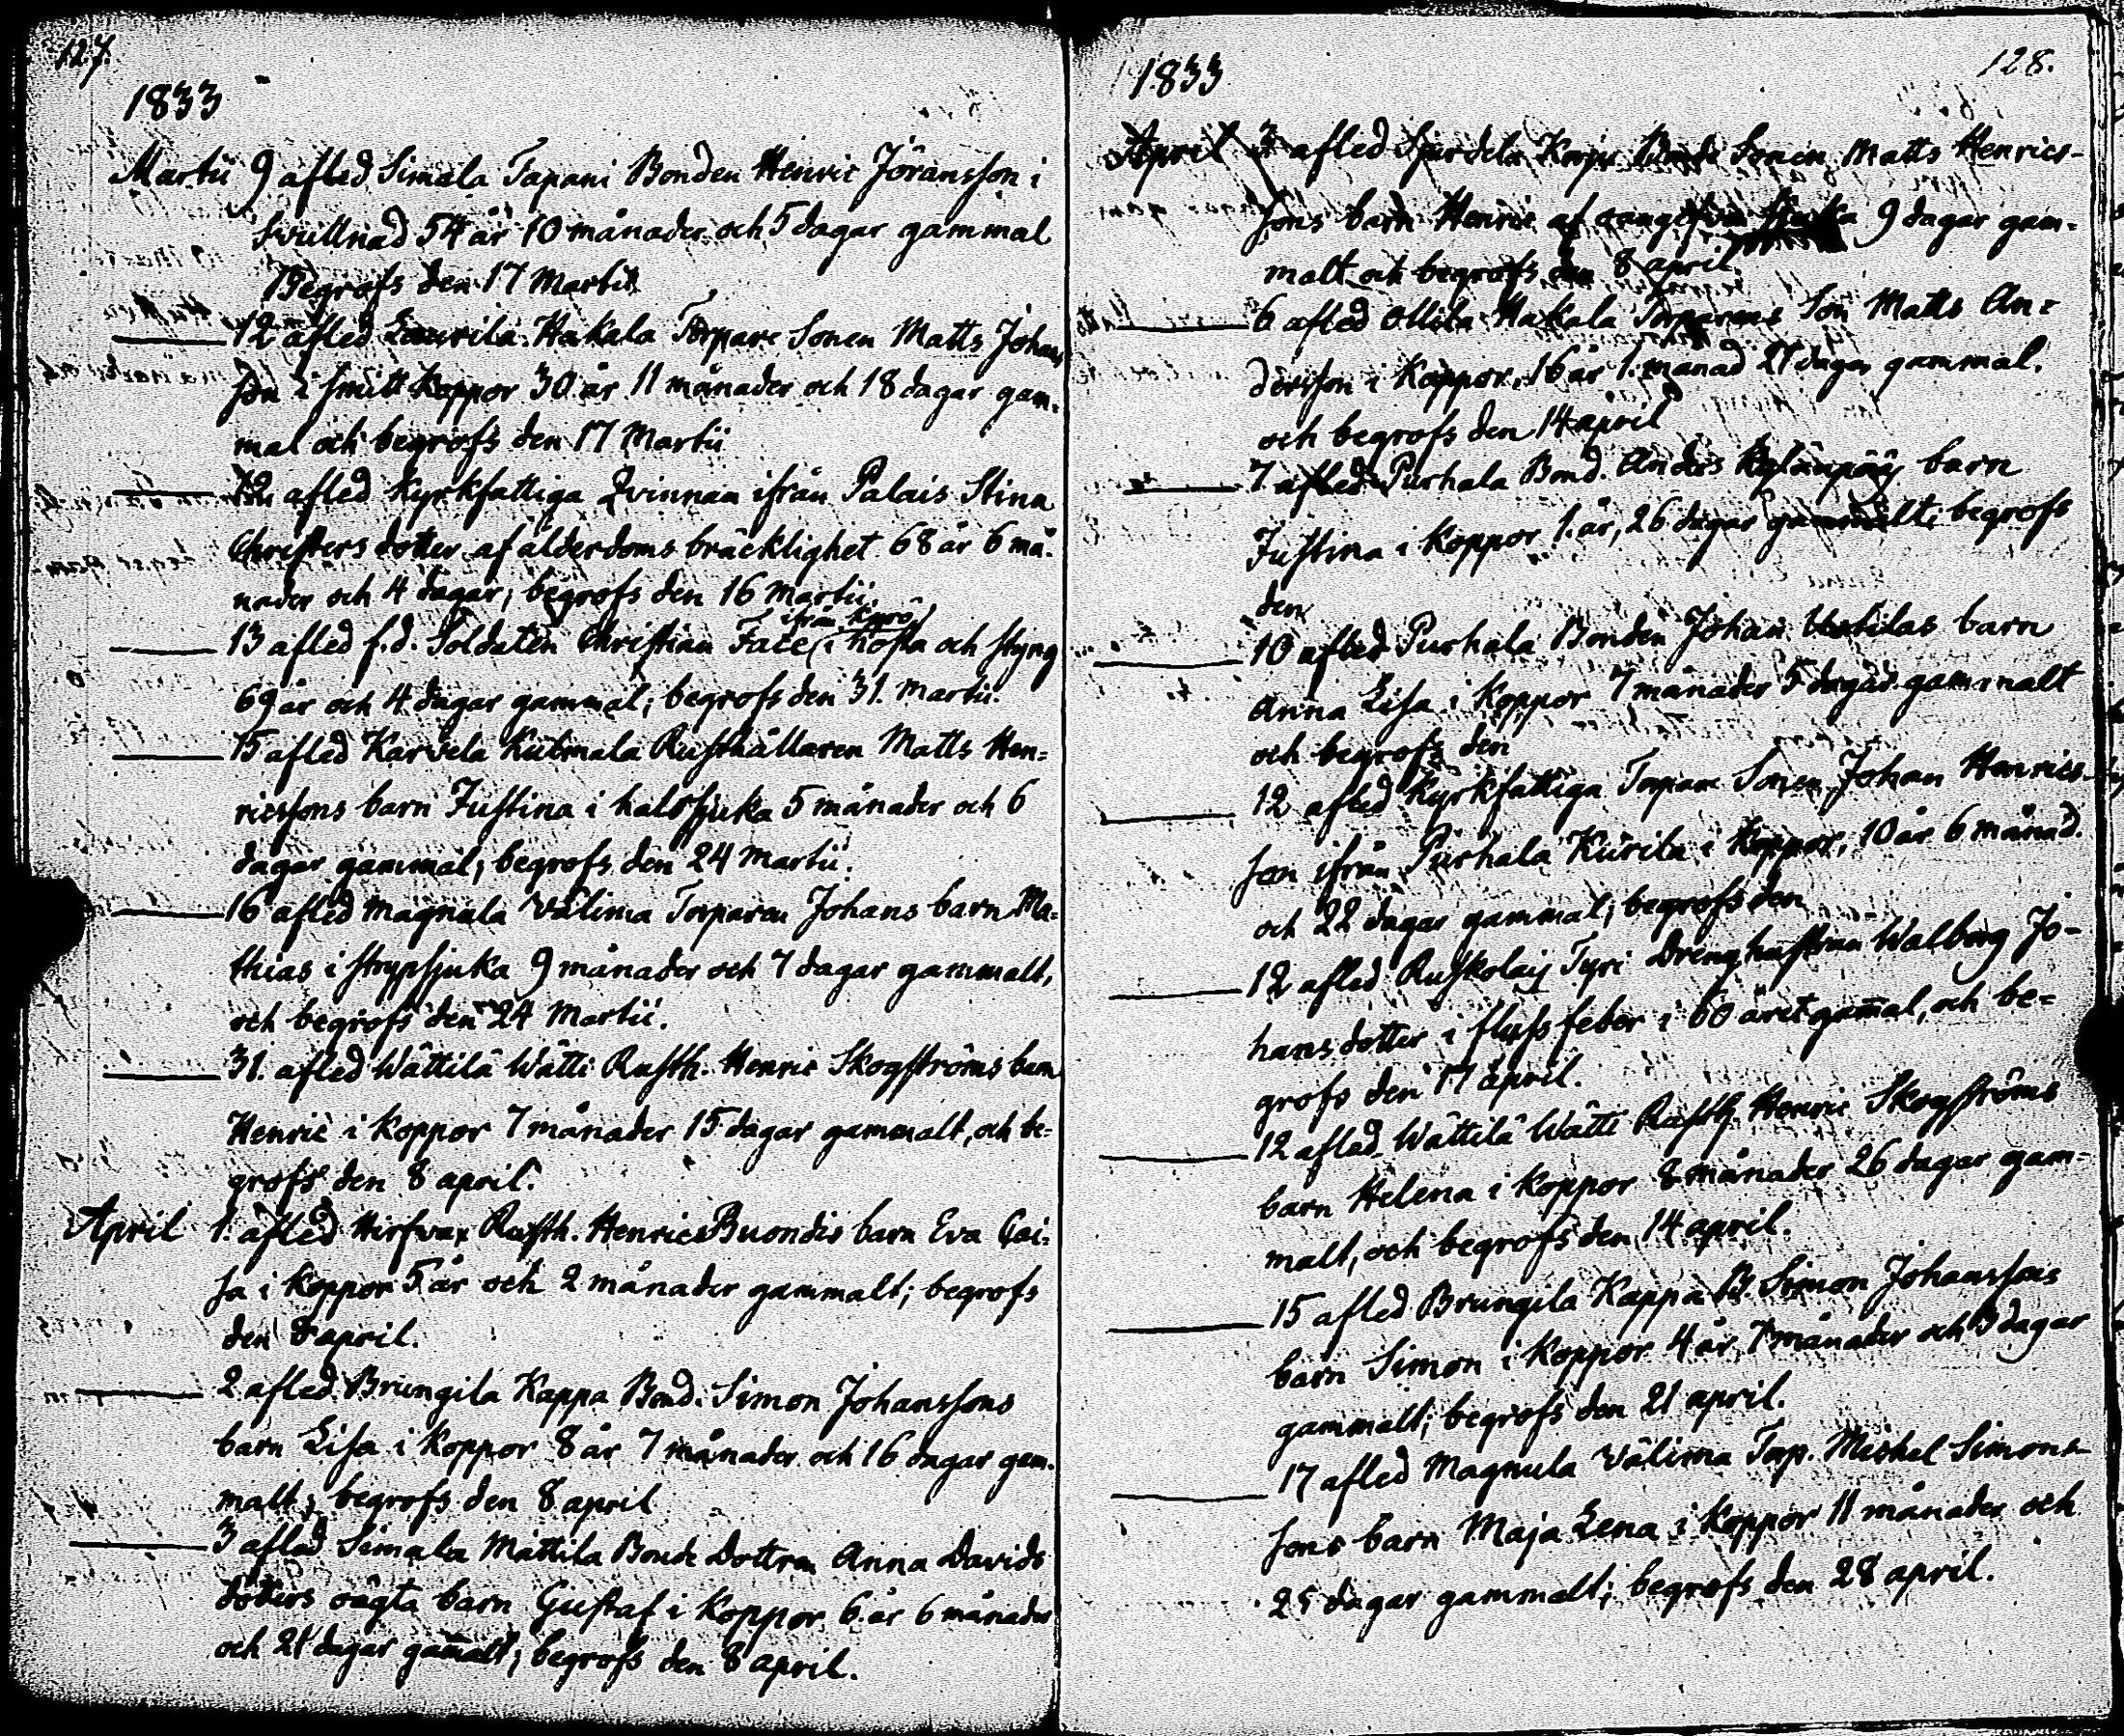 127.
1833
Martii 9 afled Simala Tapani Bonden Henric Jöransson i
svullnad 54 år 10 månader och 5 dagar gammal
Begrofs den 17 Martii
12 afled Laurila Hakala Torpare Sonen Matts Johans
son i smitt koppor 30 år 11 månader och 18 dagar gam-
mal och begrofs den 17 Martii
12 afled Kyrkfattiga Qvinnan ifrån Palais Stina
Christers dotter af ålderdoms bräcklighet 68 år 6 må-
nader och 4 dagar; begrofs den 16 Martii.
ifrån Kyro
13 afled f.d. Soldaten Christian i hosta och styng
69 år och 4 dagar gammal; begrofs den 31. Martii.
15 afled Karvela Kutmala Rusthållaren Matts Hen=
ricssons barn Justina i halssjuka 5 månader och 6
dagar gammal; begrofs den 24 Martii.
16 afled Magnula Välima Torparen Johans barn Ma=
thias i strypsjuka 9 månader och 7 dagar gammalt,
och begrofs den 24 Martii.
31. afled Wättilä Wätti Rusth. Henric Skogströms barn
Henric i koppor 7 månader 15 dagar gammalt, och be-
grofs den 8 april.
April 1. afled Hirsvax Rusth. Henrics Buondis barn Eva Cai=
sa i koppor 5 år och 2 månader gammalt; begrofs
den 8 april.
2 afled Brungila Kappa Bond. Simon Johanssons
barn Lisa i koppor 8 år 7 månader och 16 dagar gam-
malt; begrofs den 8 april
3 afled Simala Mattila Bonde Dottren Anna Davids
dotters oägta barn Gustaf i koppor 6 år 6 månader
och 21 dagar gam̅alt; begrofs den 8 april.
128.
1833
April 3 afled Korpi Bonde Sonen Matts Henrics-
sons barn Henric af 9 dagar gam-
malt och begrofs den 8 april.
6 afled Ollila Hakala Torparens Son Matts An=
dersson i koppor, 16 år 1. månad 27 dagar gammal.
och begrofs den 14 april
7 afled Purhala Bond. Anders barn
Justina i koppor 1. år, 26 dagar gammalt; begrofs
den
10 afled Purhala Bonden Johan Uotilas barn
Anna Lisa i koppor 7 månader 5 dagar gammalt
och begrofs den
12 afled Kyrkfattiga Torpare Sonen Johan Henrics
son ifrån Purhala Kurila i koppor, 10 år 6 månad.
och 22 dagar gammal; begrofs den
12 afled Ruskolaij Tyri Drenghustrun Walborg Jo-
hans dotter i flussfeber i 60 året gam̅al, och be=
grofs den 17 april.
12 afled Wättilä Wätti Rusth. Henric Skogströms
barn Helena i koppor 8 månader 26 dagar gam-
malt, och begrofs den 14 april.
15 afled Brungila Kappa B. Simon Johanssons
barn Simon i koppor 4 år 7 månader och 3 dagar
gammalt; begrofs den 21 april.
17 afled Magnula Välima Torp. Michel Simons
sons barn Maja Lena i koppor 11 månader och
25 dagar gammalt; begrofs den 28 april.